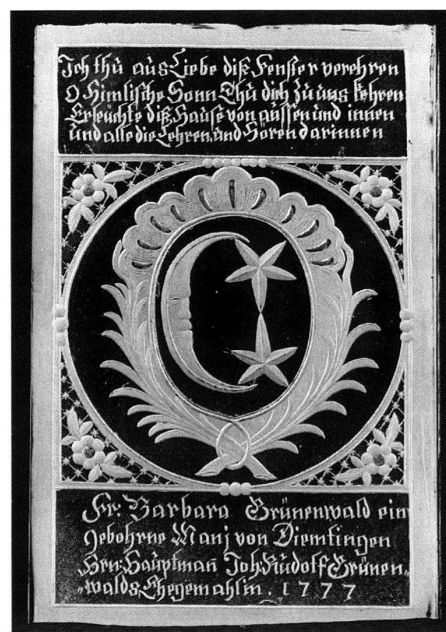 Ich thů aůs Liebe diß Fenster verehren
O Himlische Sonn Thů dich zů ůns kehren
Erleuchte diß Hauße von aůssen ůnd innen
ůnd alle die Lehren ůnd Hören darinnen
Fr: Barbara Grünenwald ein
gebohrne Mani von Diemtingen
Hrn: Hauptman̄ Joh: Růdolf Grünen„
„walds Ehegemahlin. 1777